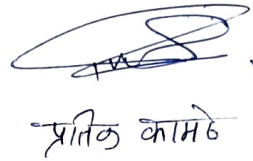 प्रतिक कामठे